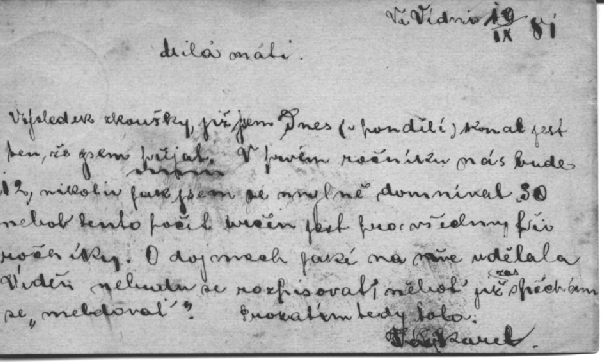 Ve Vídni 19/IX 81
Milá máti.
Výsledek zkoušky, již jsem Dnes (v pondělí) konal jest
ten, že jsem přijat. V prvém ročníku nás bude
12, nikoliv jak jsem se mylně domníval 30
neboť tento počet určen jest pro všechny tři
ročníky. O dojmech jaké na mne udělala
Vídeň nebudu se rozpisovati, neboť již zas spěchám
se „meldovat“. Prozatím tedy tolo.
Karel.